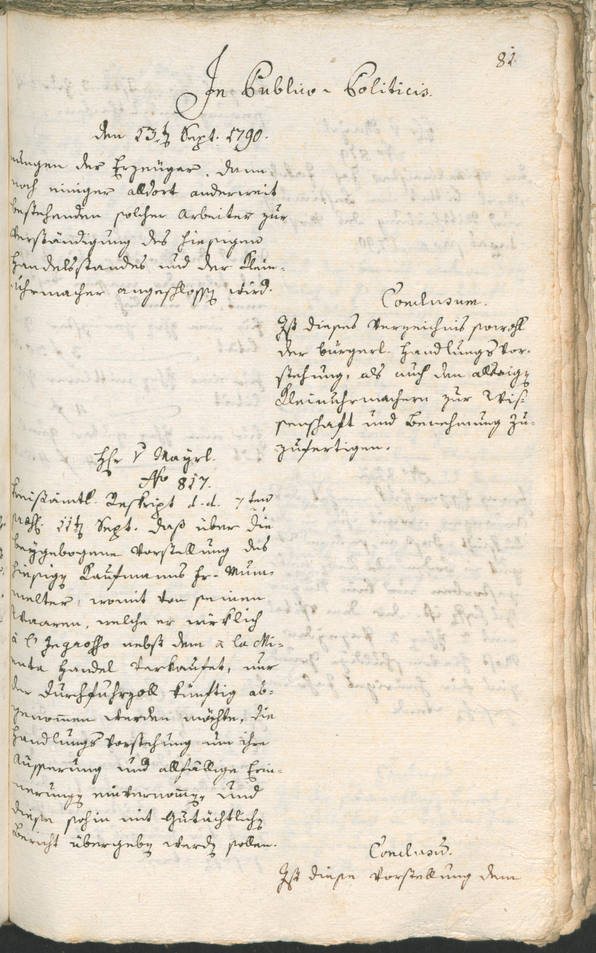 81
In Publico-Politicis.
den 13.t Sept. 1790.
nungen der Erzeuger, dann
noch einiger alldort anderweit
bestehenden solcher Arbeiter zur
Verständigung des hiesigen
Handelsstandes und der Klein-
uhrmacher angeschlossen wird.
Conclusum.
Ist dieses Verzeichnis sowohl
der bürgerl. Handlungsvor-
stehung, als auch den allhiesigen
Kleinuhrmachern zur Wis-
senschaft und Benehmung zu-
zufertigen.
Hr v Mayrl.
No 817.
Kreisämtl. Reskript d. d. 7ten
11t Sept. daß über die
beygebogene Vorstellung des
hiesigen Kaufmanns Hr. Mum-
melter, womit von seinen
Waaren, welche er wirklich
à l'Ingrosso nebst dem a la Mi-
nuta Handel verkaufet, nur
der Durchfuhrzoll künftig ab-
genommen werden möchte, die
Handlungsvorstehung um ihre
Äusserung und allfällige Erin-
nerungen einvernommen, und
diese sohin mit Gutächtlichen
Bericht übergeben werden sollen.
Conclusum.
Ist diese Vorstellung dem